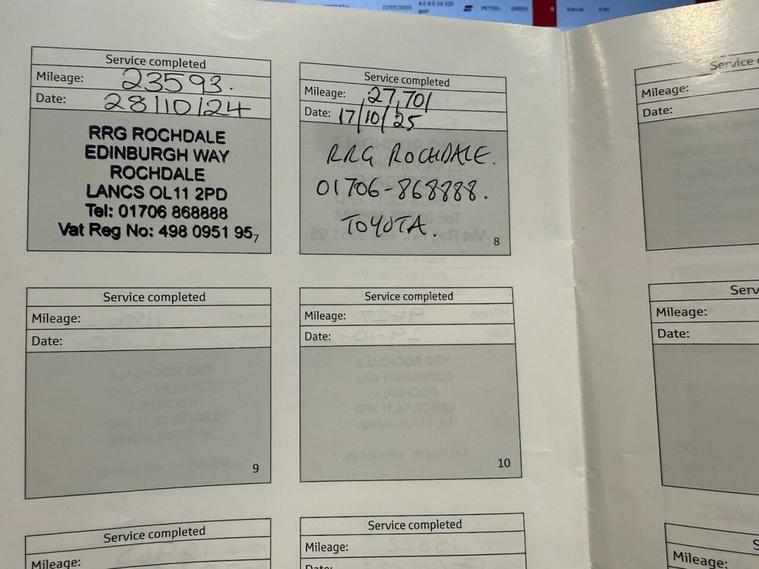 PETROL
Manual
Service completed
Mileage: 23593.
Date: 28/10/24
RRG ROCHDALE
EDINBURGH WAY
ROCHDALE
LANCS OL11 2PD
Tel: 01706 868888
Vat Reg No: 498 0951 95
7
Service completed
Mileage: 27,701
Date: 17/10/25
RRG ROCHDALE.
01706-868888.
TOYOTA.
8
Service
Mileage:
Date:
Service completed
Mileage:
Date:
9
Service completed
Mileage:
Date:
10
Serv
Mileage:
Date:
Service completed
Mileage:
Service completed
Mileage:
Date:
S
Mileage: